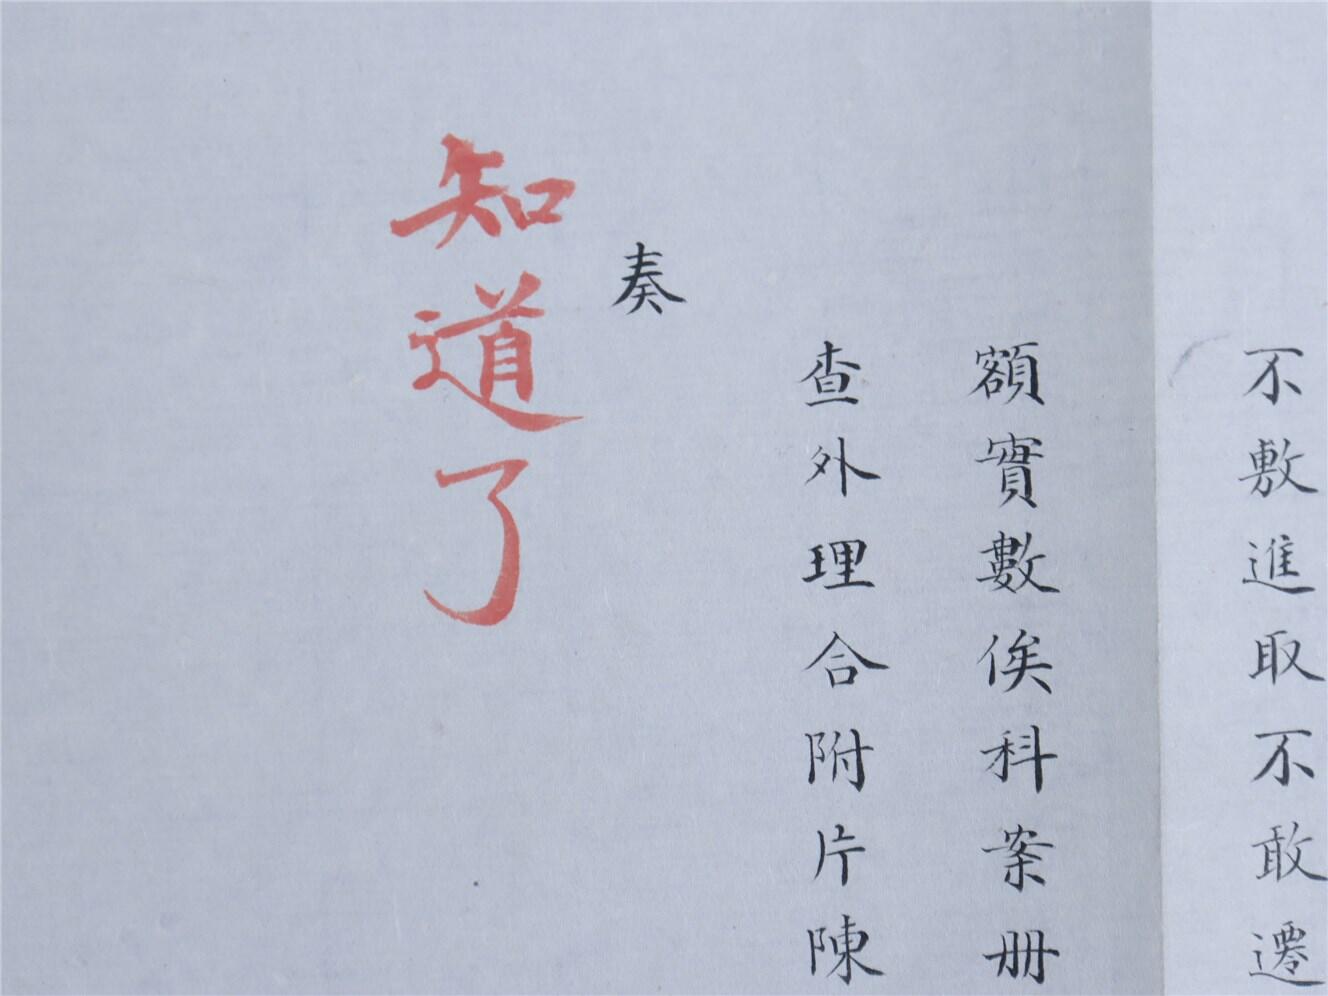 不敷進取不敢遷
額實數俟科案册
查外理合附片陳
奏
知道了